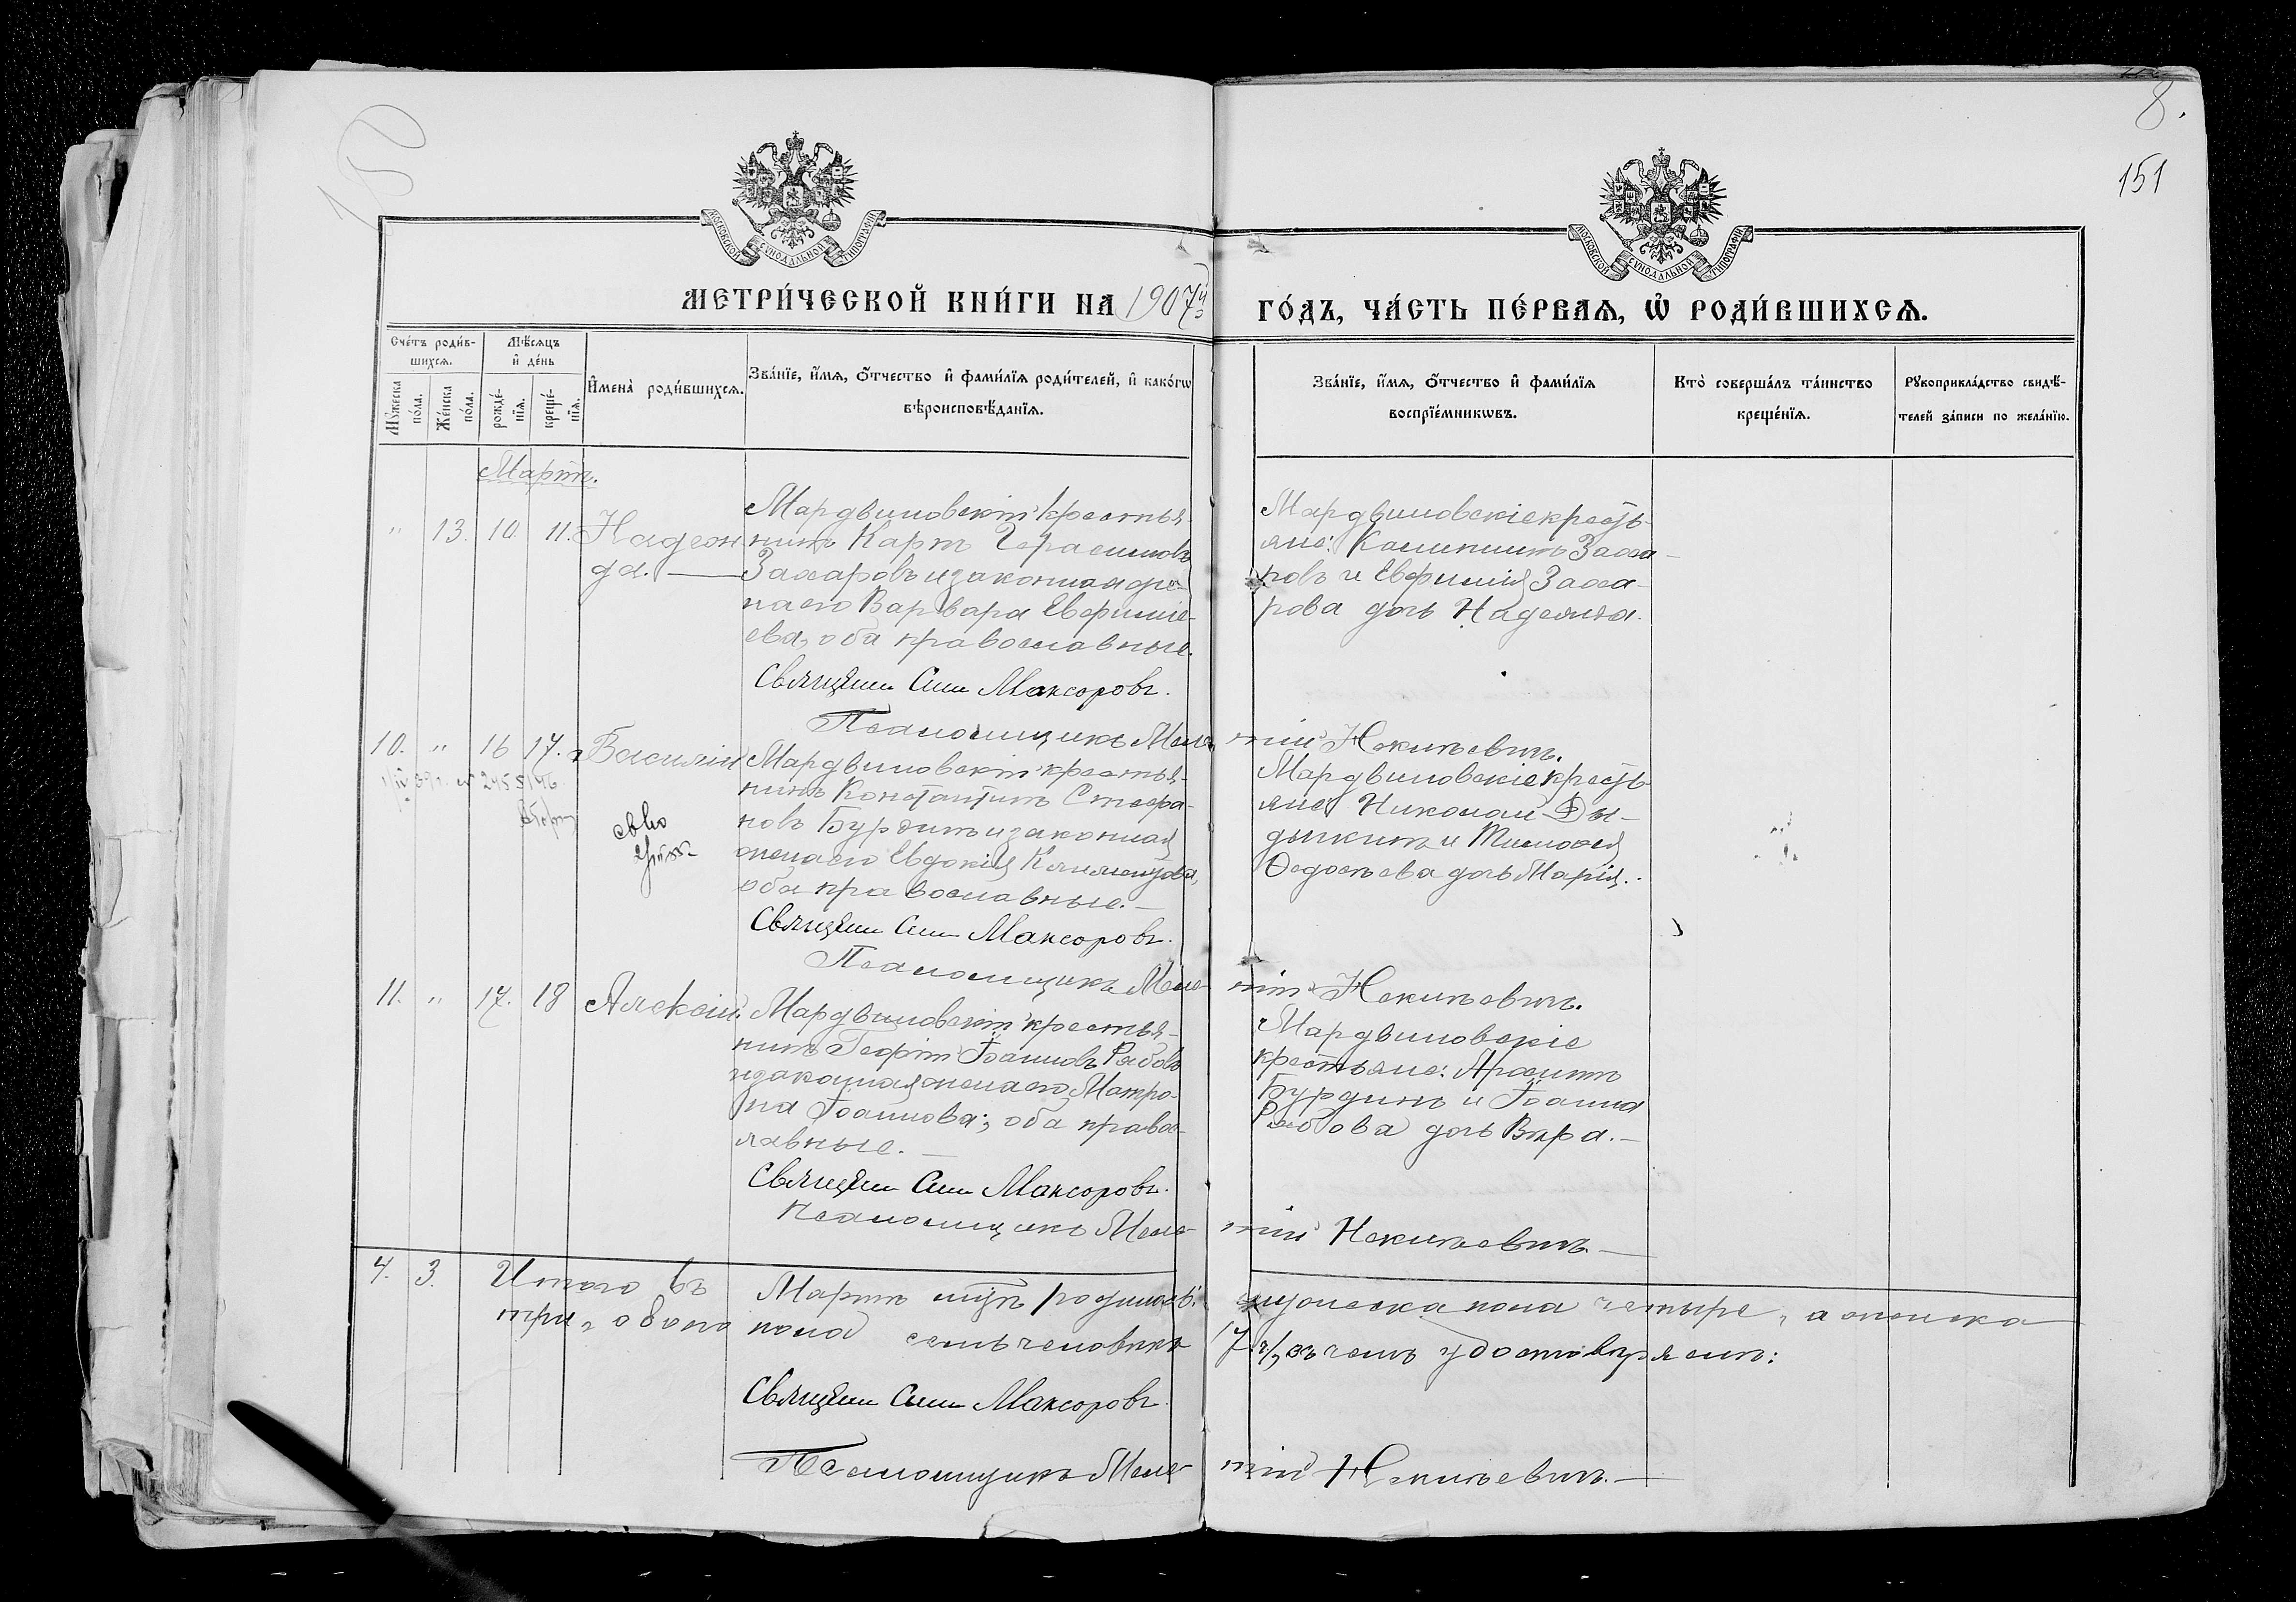 8.
151
МОСКОВСКОЙ СѴНОДАЛЬНОЙ ТИПОГРАФІИ
МОСКОВСКОЙ СѴНОДАЛЬНОЙ ТИПОГРАФІИ
МЕТРИ́ЧЕСКОЙ КНИ́ГИ НА 1907й ГО́ДЪ, ЧА́СТЬ ПЕ́РВАЯ, Ѡ РОДИ́ВШИХСЯ.
Сче́тъ роди́в-
шихся.
Мꙋжеска по́ла.
Же́нска по́ла.
Мѣ́сяцъ
и҆ де́нь
рожде́-
нїя.
креще́-
нїя.
И҆мена̀ роди́вшихся.
Зва́нїе, и҆́мя, ѻ҆́тчество и҆ фами́лїя роди́телей, и҆ како́гѡ
вѣроисповѣ́данїя.
Зва́нїе, и҆́мя, ѻ҆́тчество и҆ фами́лїя
воспрїе́мникѡвъ.
Кто̀ соверша́лъ та́инство
креще́нїя.
Рꙋкоприкла́дство свидѣ́-
телей за́писи по жела́нїю.
Мартъ.
" 13. 10. 11. Надеж
да.
Мардвиновскій крестья-
нинъ Карпъ Герасимовъ
Захаровъ и законная же-
на его Варвара Евфиміе-
ева, оба православные.
Мардвиновскіе кресть-
яне: Калиникъ Заха-
ровъ и Евфимія Заха-
рова дочь Надежда.
Священ Сим Максоровъ.
Псаломщикъ Меле тій Некипевичъ.
10. " 16 17. Василій
Мардвиновскій крестья-
нинъ Константинъ Стефа-
новъ Бурдинъ и законная
жена его Евдокія Климентова,
оба православные.
Мардвиновскіе кресть-
яне: Николай Ды-
дыкинъ и Тимофея
Ѳедосѣева дочь Марія.
Священ Сим Максоровъ.
Псаломщикъ Меле тій Некипевичъ.
11. " 17. 18 Алексій
Мардвиновскій крестья-
нинъ Георгій Іоанновъ Рябовъ
и законная жена его Матро-
на Іоаннова; оба правос-
лавные.
Мардвиновскіе
крестьяне: Архипъ
Бурдинъ и Іоанна
Рябова дочь Вѣра.
Священ Сим Максоровъ.
Псаломщикъ Меле тій Некипевичъ.
4. 3. Итого въ Мартѣ мцѣ родилось: мужеска пола четыре, а женска
три, обоего пола семь человѣкъ /7 ч/, въ чемъ удостовѣряемъ:
Священ Сим Максоровъ.
Псаломщикъ Меле тій Некипевичъ.